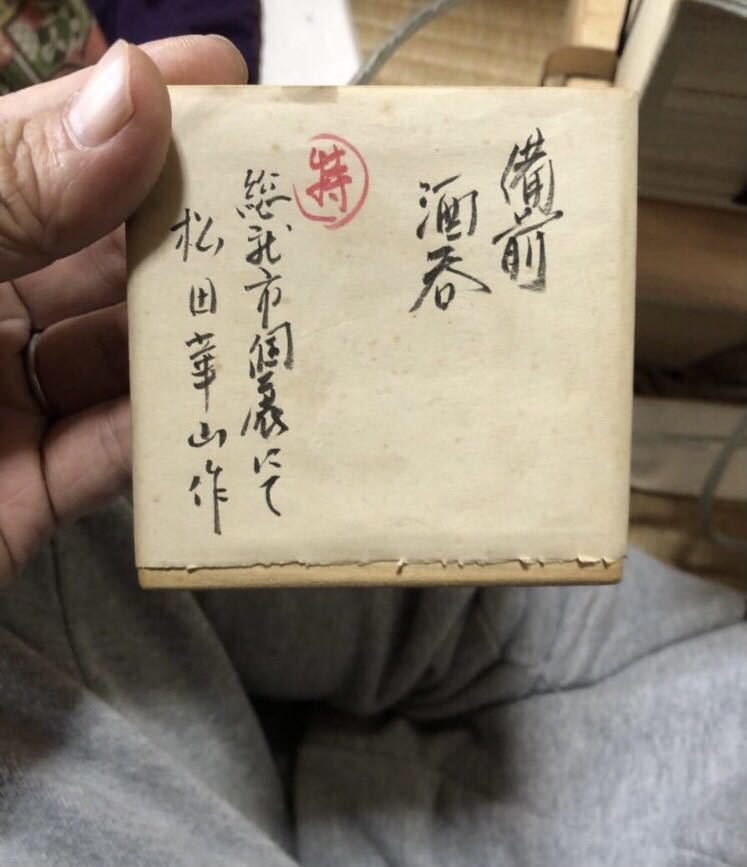 備前
酒呑
特
総社市個展にて
松田華山作